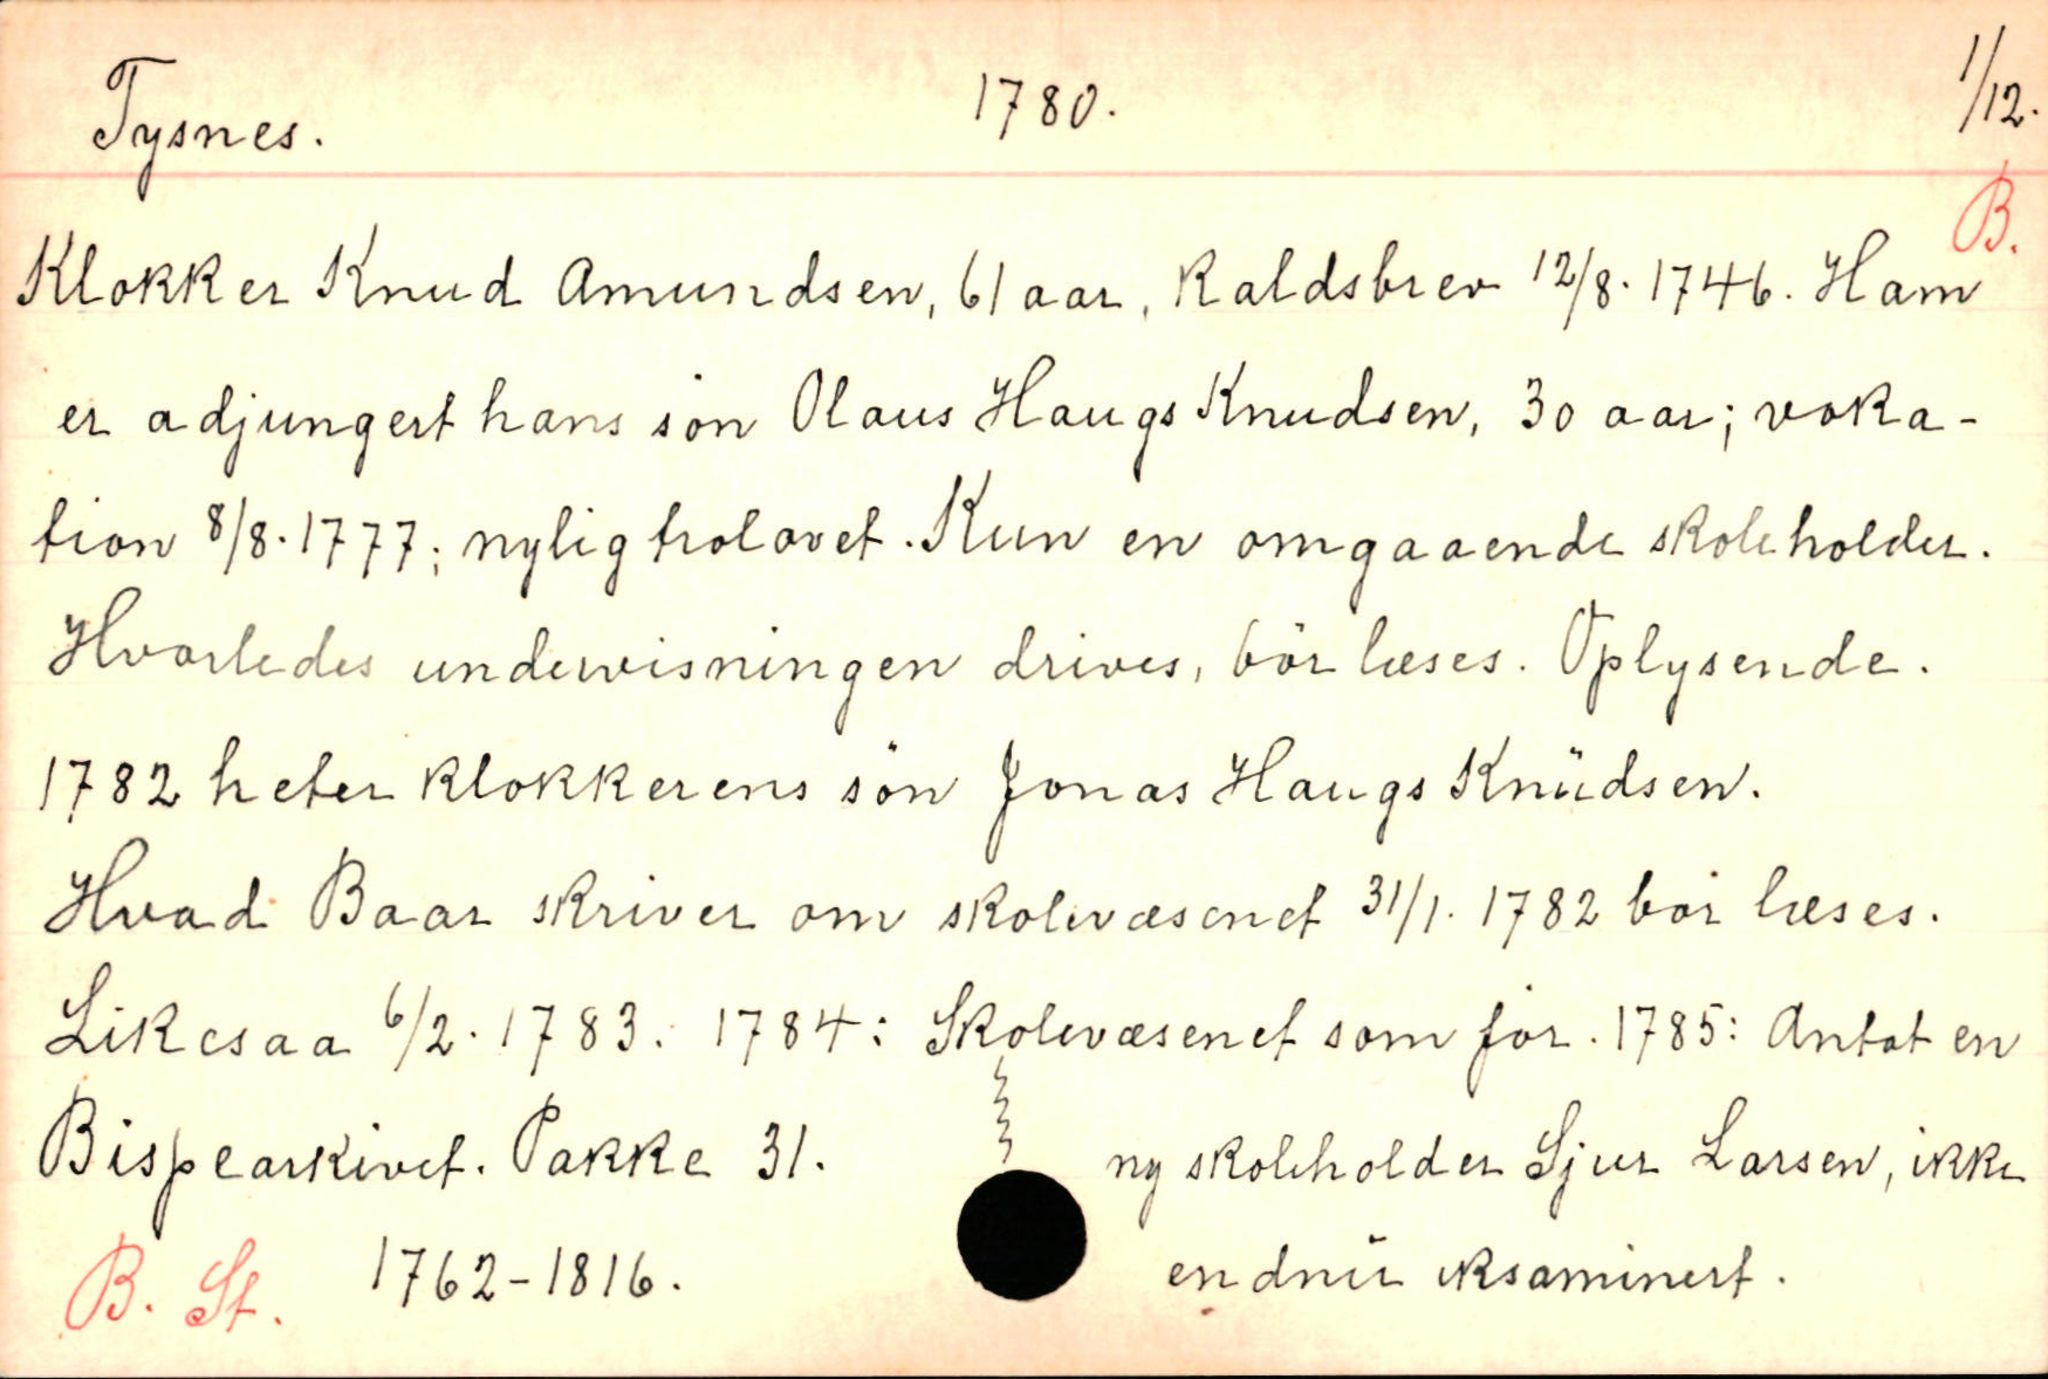 Tysnes. 1780. 1/12.
B.
Klokker Knud Amundsen, 61 aar, kaldsbrev 12/8. 1746. Ham
er adjungert hans sön Olaus Haugs Knudsen, 30 aar; voka-
tion 8/8. 1777; nylig trolovet. Kun en omgaaende skoleholder.
Hvorledes undervisningen drives, bör læses. Oplysende.
1782 heter klokkerens sön Jonas Haugs Knüdsen.
Hvad Baar skriver om skolevæsenet 31/1. 1782 bör læses.
Likesaa 6/2. 1783. 1784: Skolevæsenet som för. 1785: Antat en
Bispearkivet. Pakke 31. ny skoleholder Sjur Larsen, ikke
B. St. 1762-1816. endnü eksaminert.